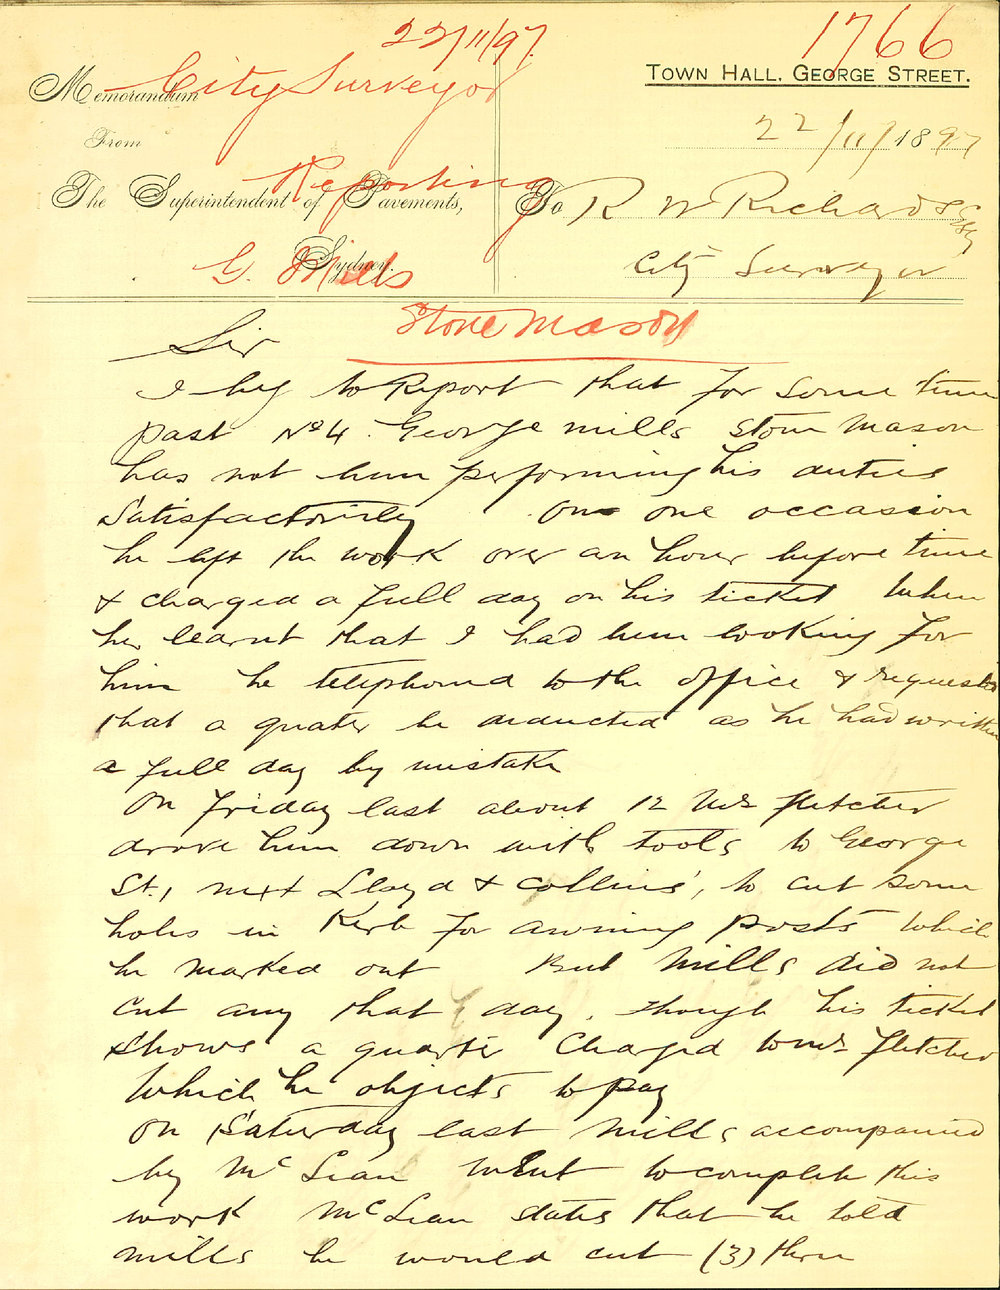 22/11/97.
1766
City Surveyor
Memorandum
TOWN HALL, GEORGE STREET.
From
22/11/1897
Reporting
The Superintendent of Pavements,
To R W Richards Esq
Sydney.
G. Mills
City Surveyor
Stone Mason
Sir
I beg to Report that for some time
past No 4. George Mills Stone Mason
has not been performing his duties
Satisfactorily On one occasion
he left the work over an hour before time
& charged a full day on his ticket When
he learnt that I had been looking for
him he telephoned to the office & requested
that a quater be deducted as he had written
a full day by mistake
On Friday last about 12 Mr Fletcher
drove him down with tools to George
St, next Lloyd & Collins', to cut some
holes in Kerb for awning posts which
he marked out But Mills did not
cut any that day, though his ticket
shows a quarter Charged to Mr Fletcher
Which he objects to pay
On Saturday last Mills accompanied
by McLean went to complete this
work McLean states that he told
Mills he would cut (3) three